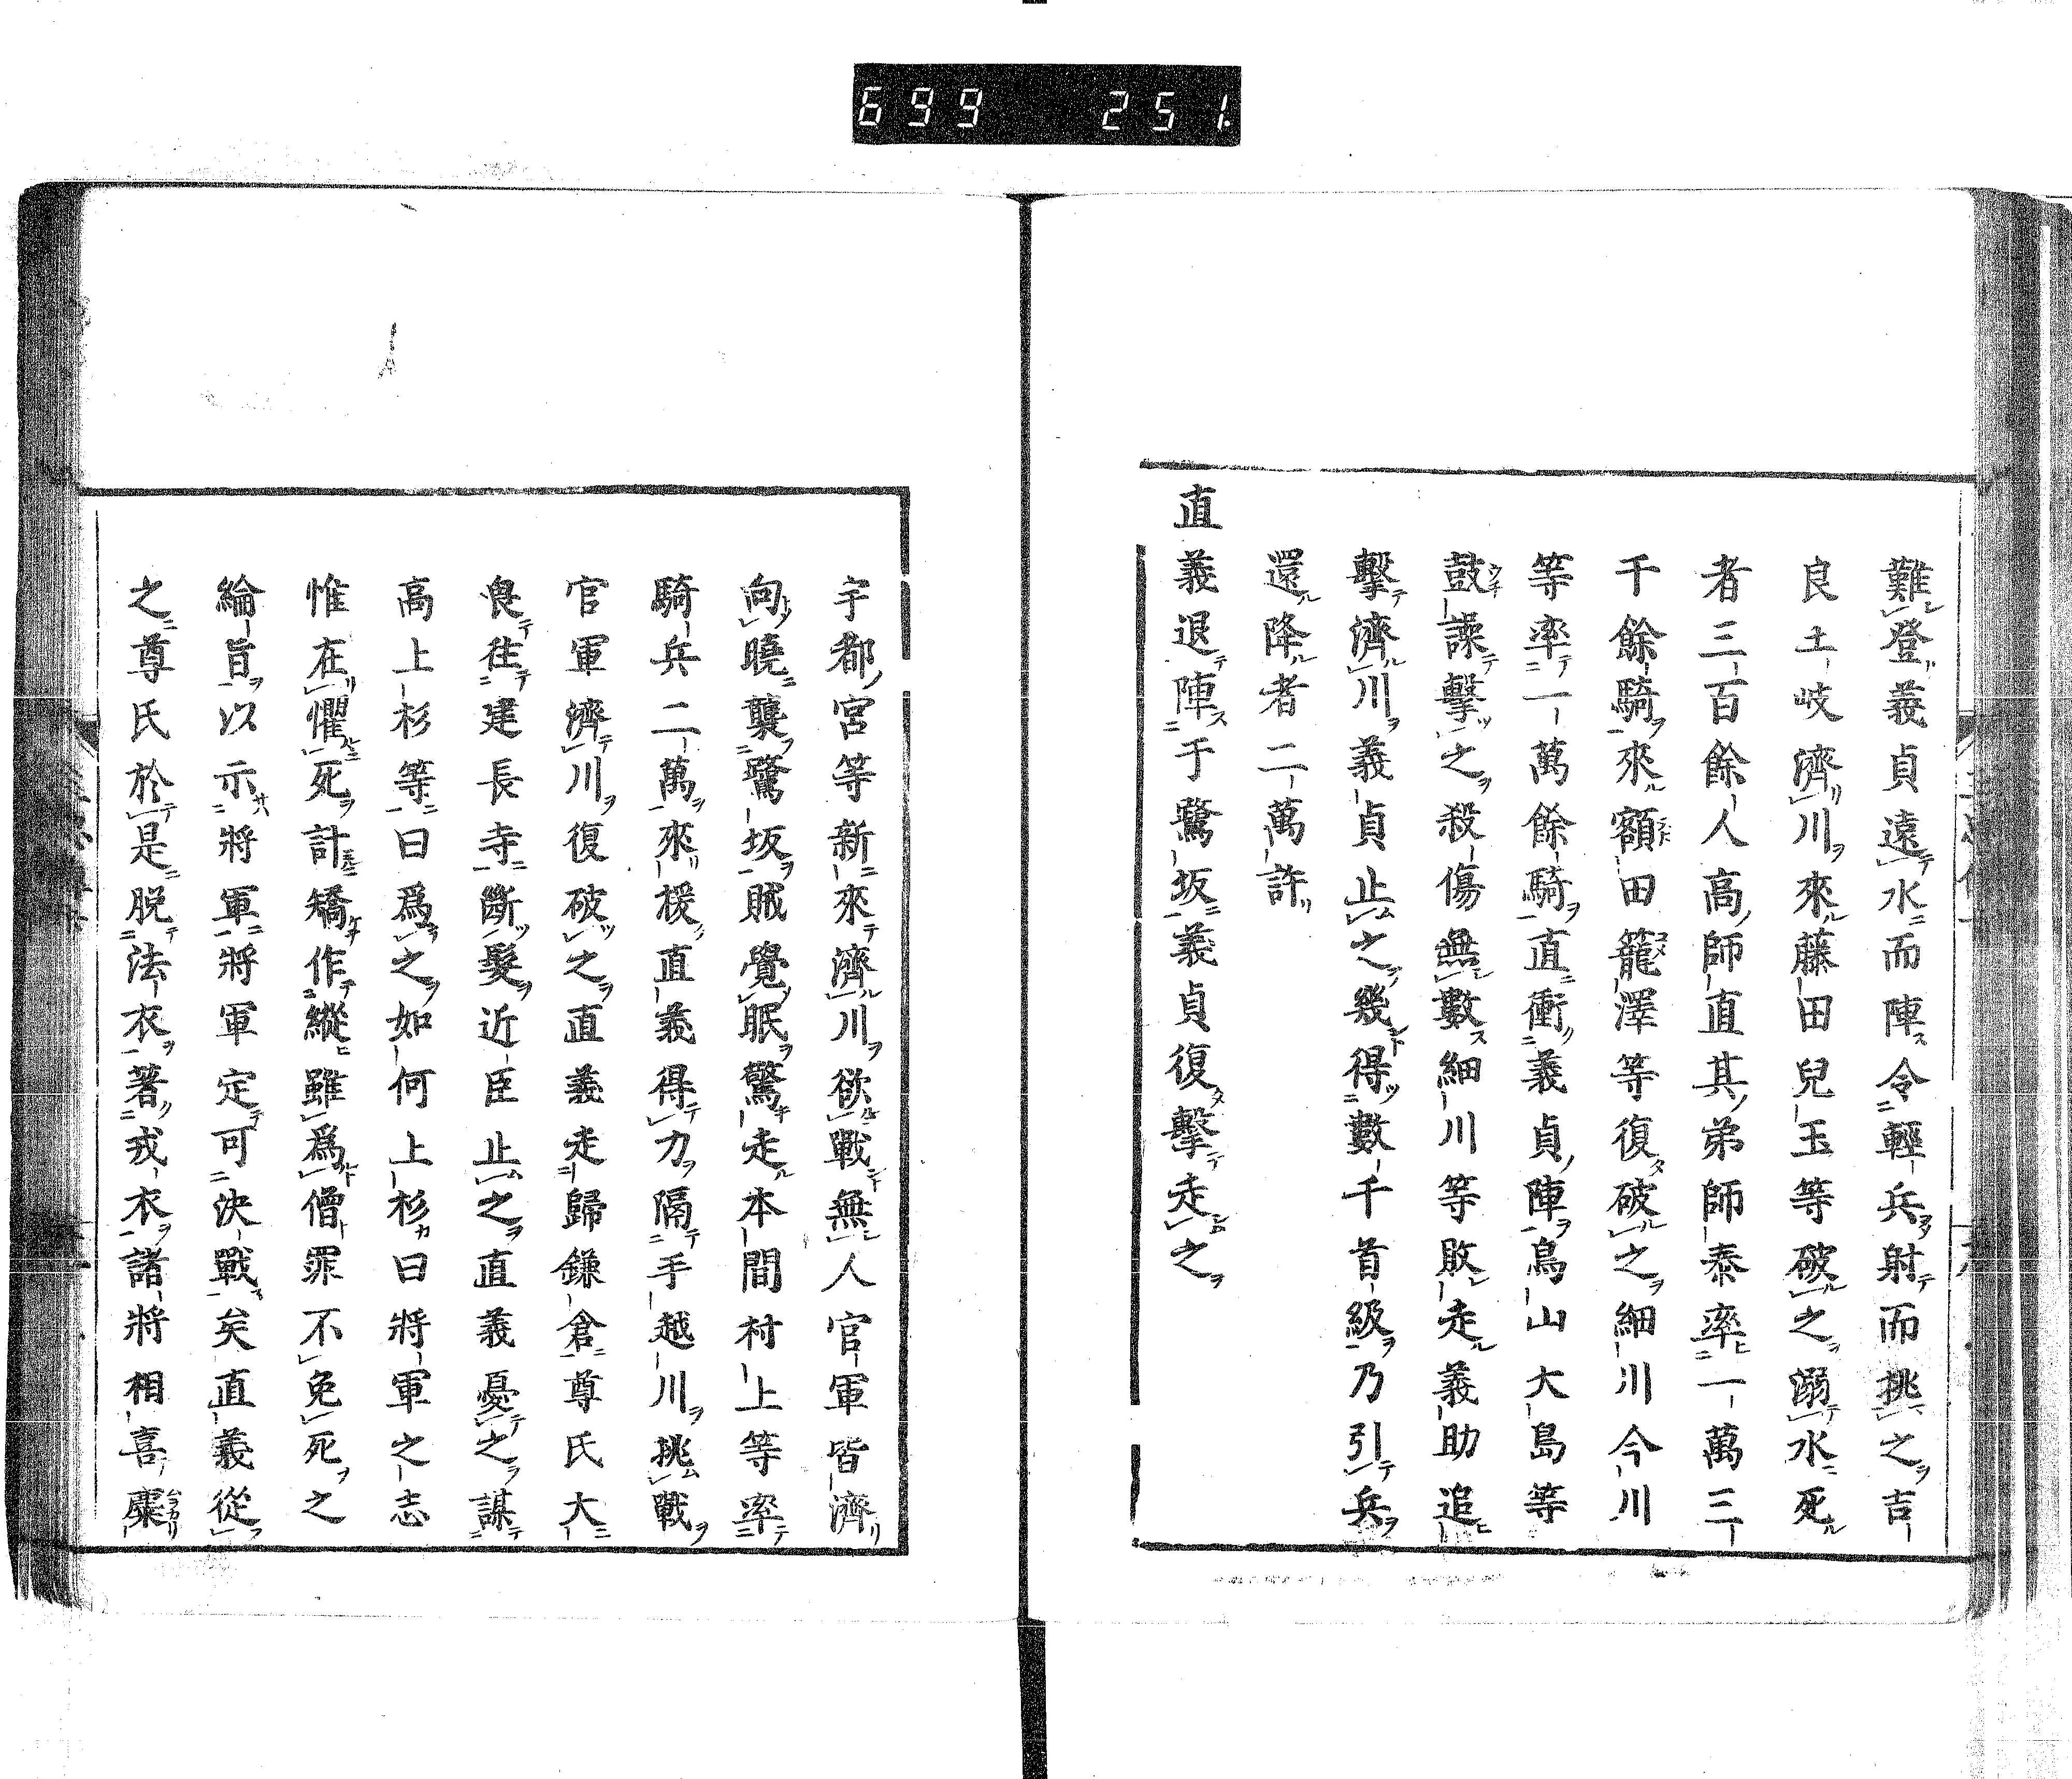 699 251.
難登義貞遠水而陣令輕兵射而挑之吉
良土岐濟川來藤田兒玉等破之溺水死
者三百餘人高師直其弟師泰率一萬三
千餘騎來額田籠澤等復破之細川今川
等率一萬餘騎直衝義貞陣鳥山大島等
鼓譟擊之殺傷無數細川等敗走義助追
擊濟川義貞止之幾得數千首級乃引兵
還降者二萬許
直義退陣于驚坂義貞復擊走之
宇都宮等新來濟川欲戰無人官軍皆濟
向曉襲驚坂賊覺眠驚走本間村上等率
騎兵二萬來援直義得力隔手越川挑戰
官軍濟川復破之直義走歸鎌倉尊氏大
喪往建長寺斷髮近臣止之直義憂之謀
高上杉等曰爲之如何上杉曰將軍之志
惟在懼死計矯作縱雖爲僧罪不免死之
綸旨以示將軍將軍定可決戰矣直義從
之尊氏於是脱法衣著戎衣諸將相喜麋